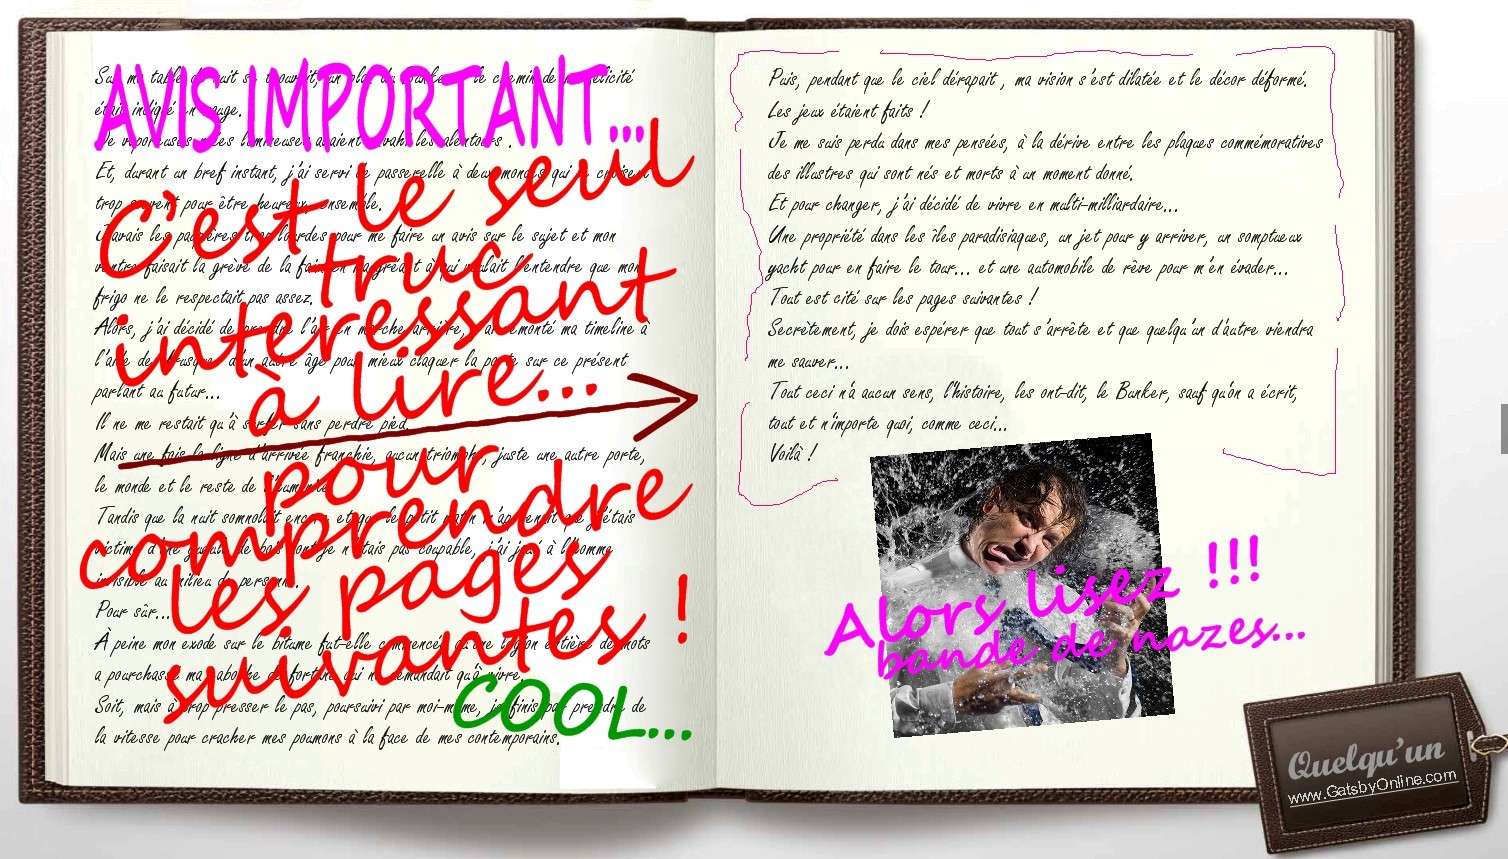 AVIS IMPORTANT...
C'est le seul
truc
intéressant
à lire...
pour
comprendre
les pages
suivantes !
COOL...
était indiqué en rouge.
Et, durant un bref instant, j'ai servi de passerelle à deux mondes qui se croisent
trop souvent pour être heureux ensemble.
J'avais les paupières trop lourdes pour me faire un avis sur le sujet et mon
ventre faisait la grève de la faim en maugréant à qui voulait l'entendre que mon
frigo ne le respectait pas assez.
Alors, j'ai décidé de prendre l'air en marche arrière, j'ai remonté ma timeline à
pour mieux claquer la porte sur ce présent
parlant au futur...
Il ne me restait qu'à sans perdre pied.
Mais une fois la ligne d'arrivée franchie, aucun triomphe, juste une autre porte,
le monde et le reste de l'humanité
Tandis que la nuit somnolait encore et que le petit matin m'apprenait que j'étais
victime d'une gueule de bois dont je n'étais pas coupable, j'ai joué à l'homme
invisible au milieu de personne.
Pour sûr...
À peine mon exode sur le bitume fut-elle commencée, qu'une légion entière de mots
a pourchassé ma bonne fortune qui ne demandait qu'à vivre.
Soit, mais à trop presser le pas, poursuivi par moi-même, je finis par prendre de
la vitesse pour cracher mes poumons à la face de mes contemporains.
Puis, pendant que le ciel dérapait , ma vision s'est dilatée et le décor déformé.
Les jeux étaient faits !
Je me suis perdu dans mes pensées, à la dérive entre les plaques commémoratives
des illustres qui sont nés et morts à un moment donné.
Et pour changer, j'ai décidé de vivre en multi-milliardaire...
Une propriété dans les îles paradisiaques, un jet pour y arriver, un somptueux
yacht pour en faire le tour... et une automobile de rêve pour m'en évader...
Tout est cité sur les pages suivantes !
Secrètement, je dois espérer que tout s'arrête et que quelqu'un d'autre viendra
me sauver...
Tout ceci n'a aucun sens, l'histoire, les ont-dit, le Bunker, sauf qu'on a écrit,
tout et n'importe quoi, comme ceci...
Voilà !
Alors lisez !!!
bande de nazes...
Quelqu'un !
www.GatsbyOnline.com